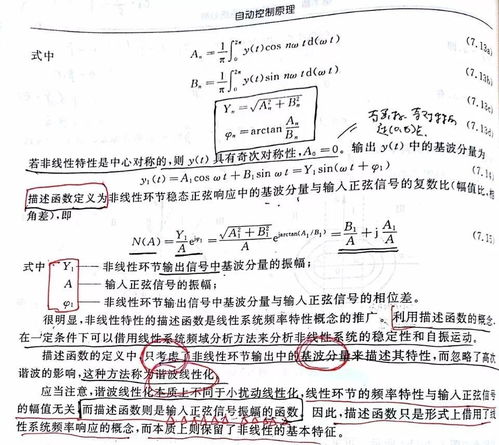 自动控制原理
式中 Aₙ = 1/π ∫₀^2π y(t)cos nω td(ω t) (7.13a)
Bₙ = 1/π ∫₀^2π y(t)sin nω td(ω t) (7.13b)
Yₙ = √(Aₙ² + Bₙ²) (7.13c)
φₙ = arctan Aₙ/Bₙ (7.13d)
若非线性特性是中心对称的,则 y(t) 具有奇次对称性, A₀ = 0。输出 y(t) 中的基波分量为
y₁(t) = A₁cos ω t + B₁sin ω t = Y₁sin(ω t + φ₁) (7.14)
描述函数定义为非线性环节稳态正弦响应中的基波分量与输入正弦信号的复数比(幅值比、相
角差),即
N(A) = Y₁/A e^jφ₁ = √(A₁² + B₁²)/A e^jarctan(A₁/B₁) = B₁/A + j A₁/A (7.15)
式中 Y₁ —— 非线性环节输出信号中基波分量的振幅;
A —— 输入正弦信号的振幅;
φ₁ —— 非线性环节输出信号中基波分量与输入正弦信号的相位差。
很明显,非线性特性的描述函数是线性系统频率特性概念的推广。利用描述函数的概念,
在一定条件下可以借用线性系统频域分析方法来分析非线性系统的稳定性和自振运动。
描述函数的定义中,只考虑了非线性环节输出中的基波分量来描述其特性,而忽略了高次
谐波的影响,这种方法称为谐波线性化。
应当注意,谐波线性化本质上不同于小扰动线性化,线性环节的频率特性与输入正弦信号
的幅值无关,而描述函数则是输入正弦信号振幅的函数。因此,描述函数只是形式上借用了线
性系统频率响应的概念,而本质上则保留了非线性的基本特征。